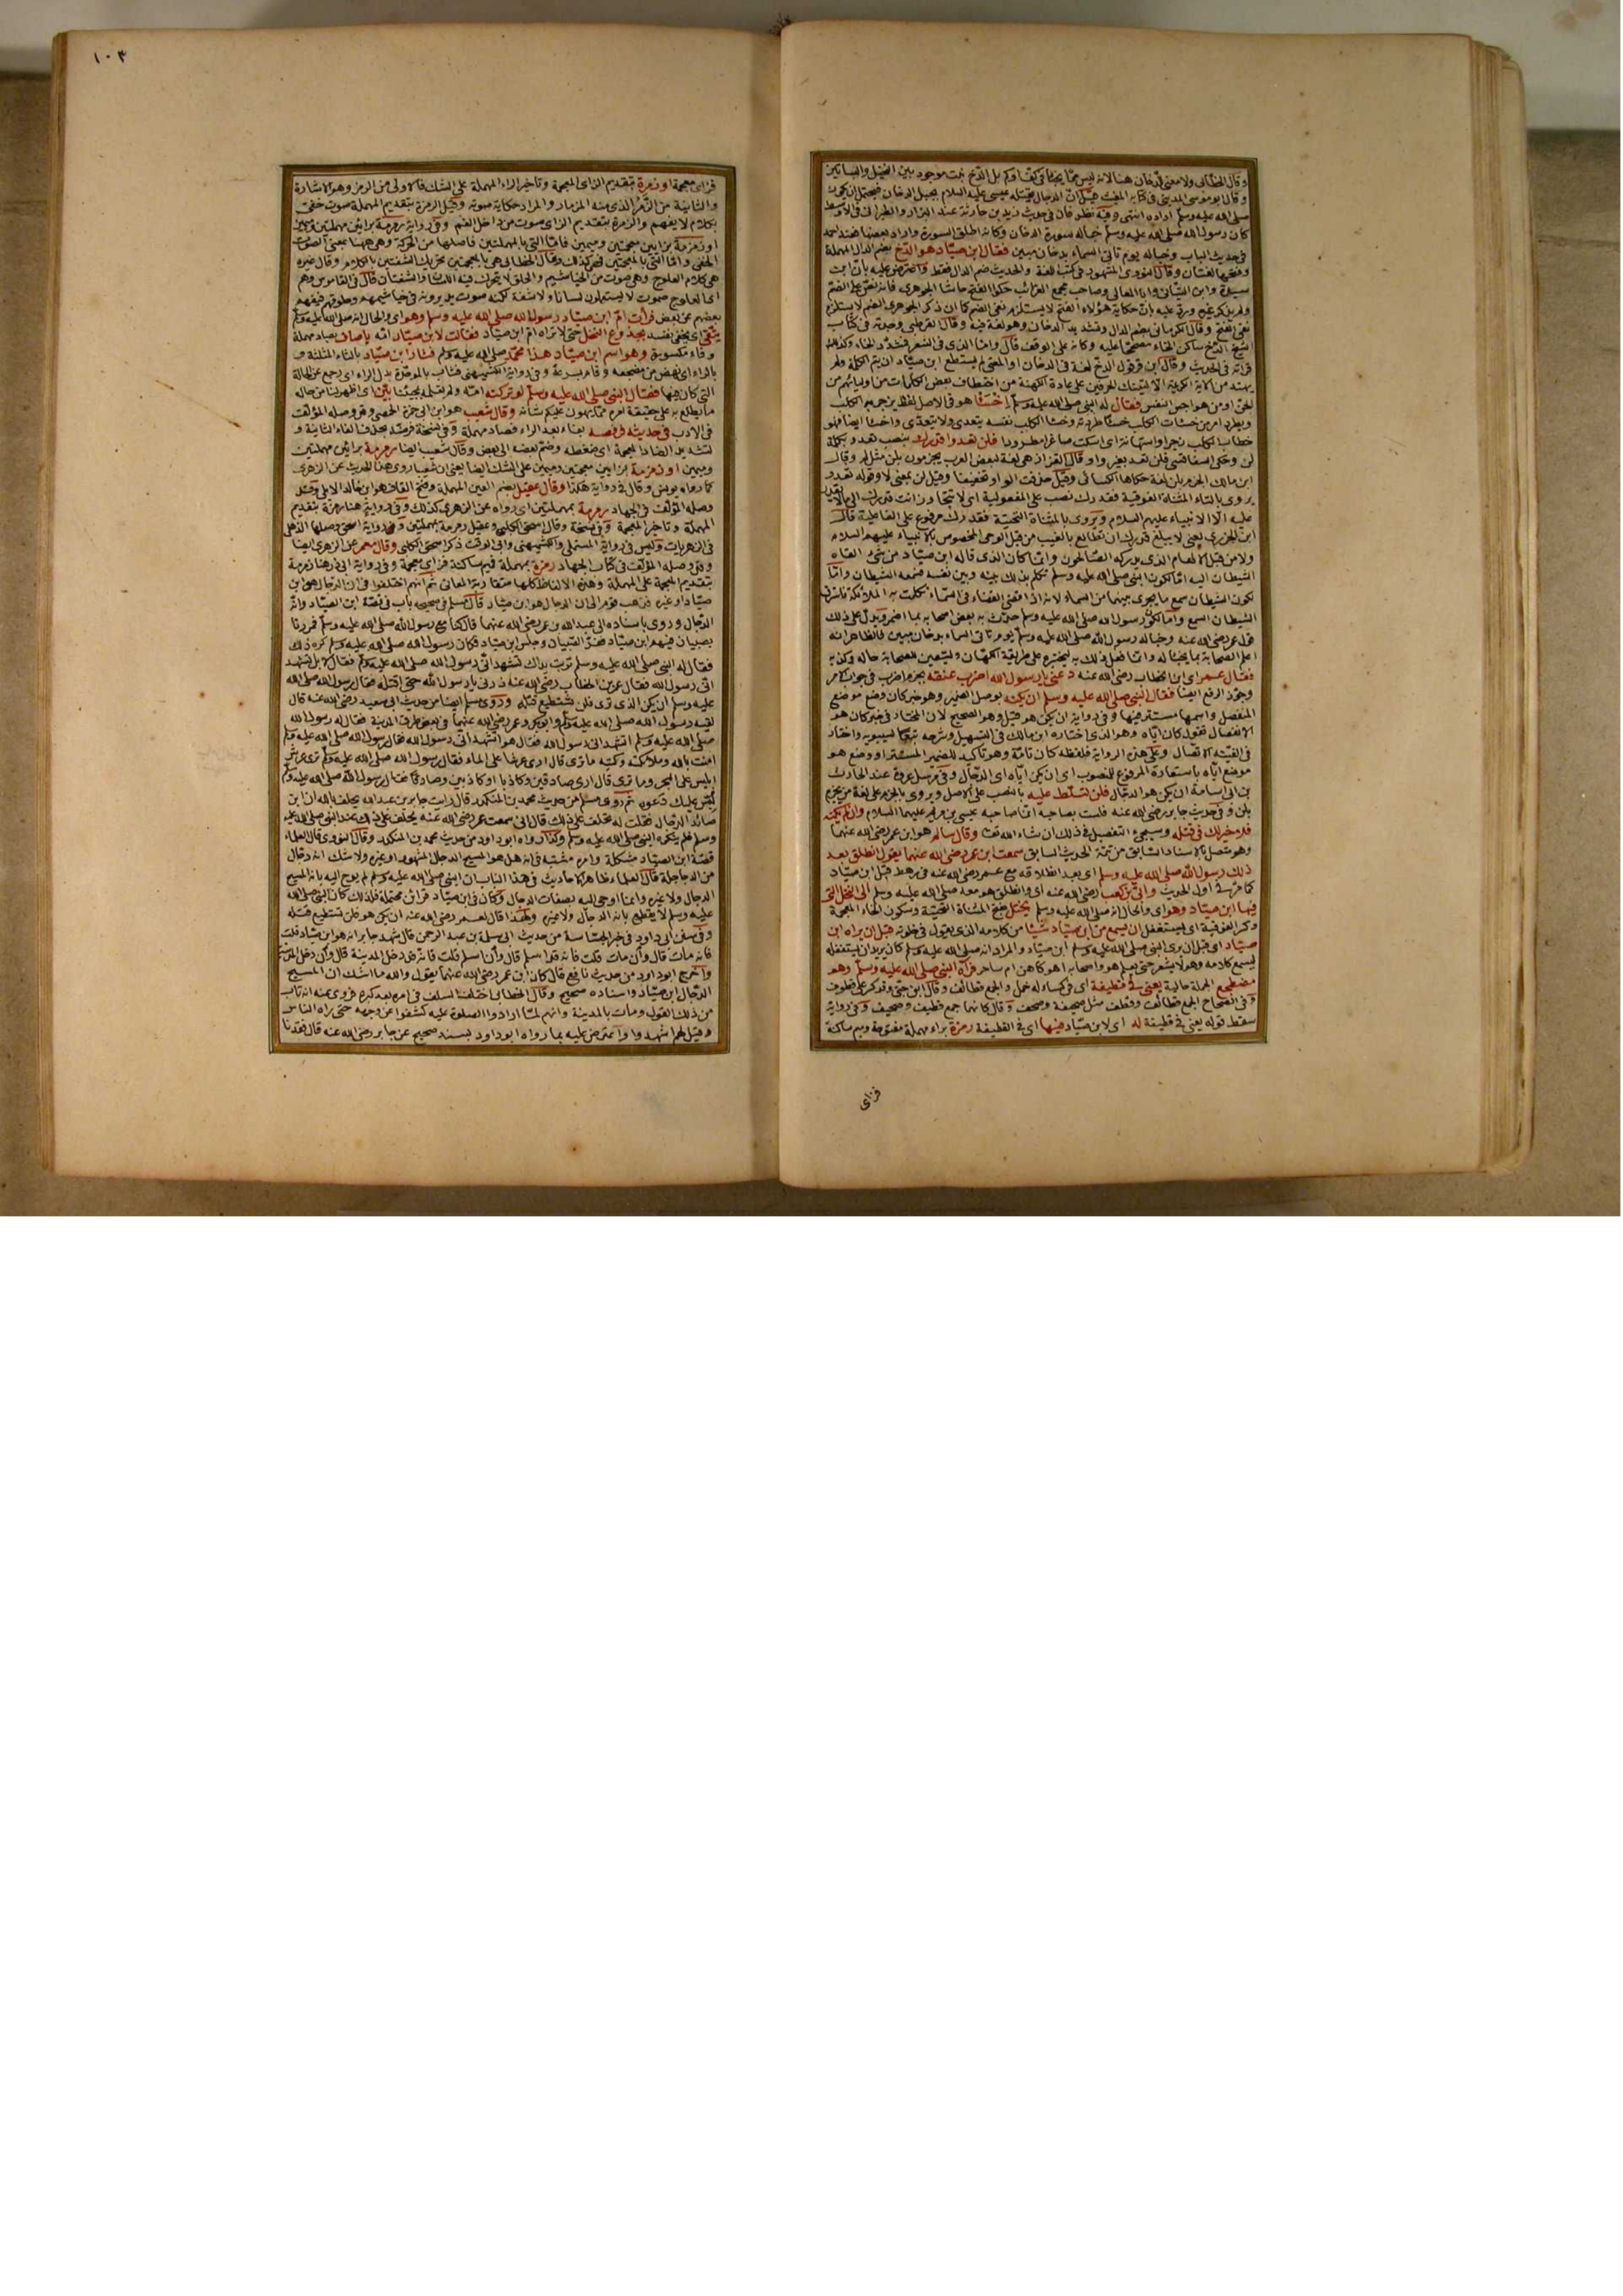 وقال الخطابى ولا معنى للدخان هنا لانه ليس مما يخبأ فى كف او كم بل الدخ نبت موجود بين النخيل والبساتين
وقال ابو موسى المدينى فى كتابه المغيث قيل ان الدجال يقتله عيسى عليه السلام بجبل الدخان فيحتمل ان يكون
صلى الله عليه وسلم اراده انتهى وفيه نظر فان فى حديث زيد بن حارثة عند البزار والطبرانى فى الاوسط
كان رسول الله صلى الله عليه وسلم خبأ له سورة الدخان وكانه اطلق السورة واراد بعضها فعند احمد
فى حديث الباب وخبأ له يوم تاتى السماء بدخان مبين فقال ابن صياد هو الدخ بضم الدال المهملة
وفتحها لغتان وقال النووى المشهور فى كتب اللغة والحديث ضم الدال فقط واعترض عليه بان ابن
سيدة وابن التيانى وابا المعالى وصاحب مجمع الغرائب حكوا الفتح حاشا الجوهرى فانه نص على الضم
ولم يذكر غيره ورد عليه بان حكاية هؤلاء الفتح لا يستلزم نفى الضم كما ان ذكر الجوهرى الضم لا يستلزم
نفى الفتح وقال الكرمانى بضم الدال وتشديد الدخان وهو لغة فيه وقال القرطبى وجدته فى كتاب
الشيخ الدخ ساكن الخاء مصححا عليه وكانه على الوقف قال واما الذى فى الشعر فتشدد الخاء وكذلك
قراته فى الحديث وقال ابن قرقول الدخ لغة فى الدخان او المعنى لم يستطع ابن صياد ان يتم الكلمة ولم
يهتد من الاية الكريمة الا لهذين الحرفين على عادة الكهنة من اختطاف بعض الكلمات من اوليائهم من
الجن او من هواجس النفس فقال له النبى صلى الله عليه وسلم اخسأ هو فى الاصل لفظ يزجر به الكلب
ويطرد امر من خسأت الكلب خسئا طردته وخسأ الكلب نفسه يتعدى ولا يتعدى واخسأ ايضا فهو
خطاب الكلب زجرا واستهانة اى اسكت صاغرا مطرودا فلن تعدوا قدرك بنصب تعدو بكلمة
لن وحكى السفاقسى فلن تعد بغير واو قال القزاز هى لغة لبعض العرب يجزمون بلن مثل لم وقال
ابن مالك الجزم بلن لغة حكاها الكسائى وقيل حذفت الواو تخفيفا وقيل لن بمعنى لا وقوله تعدو
يروى بالتاء المثناة الفوقية فقدرك نصب على المفعولية اى لا تتجاوز انت قدرك الى ما لا يقدر
عليه الا الانبياء عليهم السلام ويروى بالمثناة التحتية فقدرك مرفوع على الفاعلية قال
ابن الجوزى يعنى لا يبلغ قدرك ان تطالع بالغيب من قبل الوحى المخصوص بالانبياء عليهم السلام
ولا من قبل الالهام الذى يدركه الصالحون وانما كان الذى قاله ابن صياد من شىء القاه
الشيطان اليه اما لكون النبى صلى الله عليه وسلم تكلم بذلك بينه وبين نفسه فسمعه الشيطان واما
لكون الشيطان سمع ما يجرى بينهما من السماء لانه اذا قضى القضاء فى السماء تكلمت به الملائكة فاسترق
الشيطان السمع واما لكون رسول الله صلى الله عليه وسلم حدث به بعض اصحابه بما اضمر ويدل على ذلك
قول عمر رضى الله عنه وخبأ له رسول الله صلى الله عليه وسلم يوم تاتى السماء بدخان مبين فالظاهر انه
اعلم الصحابة بما يخبأ له وانما فعل ذلك به ليختبره على طريقة الكهان وليتعين للصحابة حاله وكذبه
فقال عمر اى ابن الخطاب رضى الله عنه دعنى يا رسول الله اضرب عنقه بجزم اضرب فى جواب الامر
وجوز الرفع ايضا فقال النبى صلى الله عليه وسلم ان يكنه بوصل الضمير وهو خبر كان وضع موضع
المنفصل واسمها مستتر فيها وفى رواية ان يكن هو قيل وهو الصحيح لان المختار فى خبر كان هو
الانفصال تقول كان اياه وهو الذى اختاره ابن مالك فى التسهيل وشرحه تبعا لسيبويه واختار
فى الفيته الاتصال وعلى هذه الرواية فلفظه كان تامة وهو تاكيد للضمير المستتر او وضع هو
موضع اياه باستعارة المرفوع للمنصوب اى ان يكن اياه اى الدجال وفى مرسل عروة عند الحارث
بن ابى اسامة ان يكن هو الدجال فلن تسلط عليه بالنصب على الاصل ويروى بالجزم على لغة من يجزم
بلن وفى حديث جابر رضى الله عنه فلست بصاحبه انما صاحبه عيسى بن مريم عليهما السلام وان لم يكنه
فلا خير لك فى قتله وسيجىء التفصيل فى ذلك ان شاء الله تعالى وقال سالم هو ابن عمر رضى الله عنهما
وهو متصل بالاسناد السابق من تتمة الحديث السابق سمعت ابن عمر رضى الله عنهما يقول انطلق بعد
ذلك رسول الله صلى الله عليه وسلم اى بعد انطلاقه مع عمر رضى الله عنه فى رهط قبل ابن صياد
كما مر فى اول الحديث وابى بن كعب رضى الله عنه اى وانطلق هو معه صلى الله عليه وسلم الى النخل التى
فيها ابن صياد وهو اى والحال انه صلى الله عليه وسلم يختل بفتح المثناة التحتية وسكون الخاء المعجمة
وكسر الفوقية اى يستغفل ان يسمع من ابن صياد شيئا من كلامه الذى يقول فى خلوته قبل ان يراه ابن
صياد اى قبل ان يرى النبى صلى الله عليه وسلم ابن صياد والمراد انه صلى الله عليه وسلم كان يريد ان يستغفله
ليسمع كلامه وهو لا يشعر حتى يعلم هو واصحابه اهو كاهن ام ساحر فرآه النبى صلى الله عليه وسلم وهو
مضطجع الجملة حالية يعنى فى قطيفة اى فى كساء له خمل والجمع قطائف وقال ابن جنى وقد كسر على قطوف
وفى الصحاح الجمع قطائف وقطف مثل صحيفة وصحف وقال كانهما جمع قطيف وصحيف وفى رواية
سقط قوله يعنى فى قطيفة له اى لابن صياد فيها اى فى القطيفة رمزة براء مهملة مفتوحة وميم ساكنة
فزاى
١٠٣
فزاى معجمة او زمرة بتقديم الزاى المعجمة وتاخير الراء المهملة على الشك فالاولى من الرمز وهو الاشارة
والثانية من الزمر الذى منه المزمار والمراد حكاية صوته وقيل الرمزة بتقديم المهملة صوت خفى
بكلام لا يفهم والزمرة بتقديم الزاى صوت من داخل الفم وفى رواية رمرمة برائين مهملتين وميمين
او زمزمة بزايين معجمتين وميمين فاما التى بالمهملتين فاصلها من الحركة وهى ههنا بمعنى الصوت
الخفى واما التى بالمعجمتين فهى كذلك وقال الخطابى هى بالمعجمتين تحريك الشفتين بالكلام وقال غيره
هى كلام العلوج وهى صوت من الخياشيم والحلق لا يتحرك فيه اللسان والشفتان قال فى القاموس وهم
اى العلوج صموت لا يستعملون لسانا ولا شفة لكنه صوت يديرونه فى خياشيمهم وحلوقهم فيفهم
بعضهم عن بعض فرأت ام ابن صياد رسول الله صلى الله عليه وسلم وهو اى والحال انه صلى الله عليه وسلم
يتقى اى يخفى نفسه بجذوع النخل حتى لا تراه ام ابن صياد فقالت لابن صياد امه يا صاف بصاد مهملة
وفاء مكسورة وهو اسم ابن صياد هذا محمد صلى الله عليه وسلم فثار ابن صياد بالثاء المثلثة و
بالراء اى نهض من مضجعه وقام بسرعة وفى رواية الكشميهنى فثاب بالموحدة بدل الراء اى رجع عن الحالة
التى كان فيها فقال النبى صلى الله عليه وسلم لو تركته امه ولم تعلمه بمجيئنا بين اى اظهر لنا من حاله
ما يطلع به على حقيقة امره مما يهون عليكم شأنه وقال شعيب هو ابن ابى حمزة الحمصى وقد وصله المؤلف
فى الادب فى حديثه فرفصه بفاء بعد الراء فصاد مهملة وفى نسخة فرضه بحذف الفاء الثانية و
تشديد الضاد المعجمة اى ضغطه وضم بعضه الى بعض وقال شعيب ايضا رمرمة برائين مهملتين
وميمين او زمزمة بزايين معجمتين وميمين على الشك ايضا يعنى ان شعيبا روى هذا الحديث عن الزهرى
كما رواه يونس وقال فى رواية هكذا وقال عقيل بضم العين المهملة وفتح القاف هو ابن خالد الايلى وقد
وصله المؤلف فى الجهاد رمرمة بمهملتين اى رواه عن الزهرى كذلك وفى رواية هنا رمزة بتقديم
المهملة وتاخير المعجمة وفى نسخة وقال اسحق الكلبى وعقيل رمرمة بمهملتين ورواية اسحق وصلها الذهلى
فى الزهريات وليس فى رواية المستملى والكشميهنى وابى الوقت ذكر اسحق الكلبى وقال معمر عن الزهرى ايضا
وقد وصله المؤلف فى كتاب الجهاد رمزة بمهملة فميم ساكنة فزاى معجمة وفى رواية ابى ذر هنا زمرة
بتقديم المعجمة على المهملة وهذه الالفاظ كلها متقاربة المعانى ثم انهم اختلفوا فى ان الدجال هو ابن
صياد او غيره فذهب قوم الى ان الدجال هو ابن صياد قال مسلم فى صحيحه باب فى قصة ابن الصياد وانه
الدجال وروى باسناده الى عبد الله بن عمر رضى الله عنهما قال كنا مع رسول الله صلى الله عليه وسلم فمررنا
بصبيان فيهم ابن صياد ففر الصبيان وجلس ابن صياد فكان رسول الله صلى الله عليه وسلم كره ذلك
فقال له النبى صلى الله عليه وسلم تربت يداك تشهد انى رسول الله صلى الله عليه وسلم فقال لا بل تشهد
انى رسول الله فقال عمر بن الخطاب رضى الله عنه ذرنى يا رسول الله حتى اقتله فقال رسول الله صلى الله
عليه وسلم ان يكن الذى ترى فلن تستطيع قتله وروى مسلم ايضا من حديث ابى سعيد رضى الله عنه قال
لقيه رسول الله صلى الله عليه وسلم وابو بكر وعمر رضى الله عنهما فى بعض طرق المدينة فقال له رسول الله
صلى الله عليه وسلم اتشهد انى رسول الله فقال هو اتشهد انى رسول الله فقال رسول الله صلى الله عليه وسلم
امنت بالله وملائكته وكتبه ما ترى قال ارى عرشا على الماء فقال رسول الله صلى الله عليه وسلم ترى عرش
ابليس على البحر وما ترى قال ارى صادقين وكاذبا او كاذبين وصادقا فقال رسول الله صلى الله عليه وسلم
لبس عليك دعوه ثم روى مسلم من حديث محمد بن المنكدر قال رايت جابر بن عبد الله يحلف بالله ان ابن
صائد الدجال فقلت له تحلف على ذلك قال انى سمعت عمر رضى الله عنه يحلف على ذلك عند النبى صلى الله عليه
وسلم فلم ينكره النبى صلى الله عليه وسلم وكذا رواه ابو داود من حديث محمد بن المنكدر وقال النووى قال العلماء
قصة ابن الصياد مشكلة وامره مشتبه فى انه هل هو المسيح الدجال المشهور او غيره ولا شك انه دجال
من الدجاجلة قال العلماء ظاهر الاحاديث فى هذا الباب ان النبى صلى الله عليه وسلم لم يوح اليه بانه المسيح
الدجال ولا غيره وانما اوحى اليه بصفات الدجال وكان فى ابن صياد قرائن محتملة فلذلك كان النبى صلى الله
عليه وسلم لا يقطع بانه الدجال ولا غيره ولهذا قال لعمر رضى الله عنه ان يكن هو فلن تستطيع قتله
وفى سنن ابى داود فى خبر الجساسة من حديث ابى سلمة بن عبد الرحمن قال شهد جابر انه هو ابن صياد قلت
فانه مات قال وان مات قلت فانه قد اسلم قال وان اسلم قلت فانه قد دخل المدينة قال وان دخل المدينة
واخرج ابو داود من حديث نافع قال كان ابن عمر رضى الله عنهما يقول والله ما اشك ان المسيح
الدجال ابن صياد واسناده صحيح وقال الخطابى اختلف السلف فى امره بعد كبره فروى عنه انه تاب
من ذلك القول ومات بالمدينة وانهم لما ارادوا الصلوة عليه كشفوا عن وجهه حتى راه الناس
وقيل لهم اشهدوا واعترض عليه بما رواه ابو داود بسند صحيح عن جابر رضى الله عنه قال فقدنا